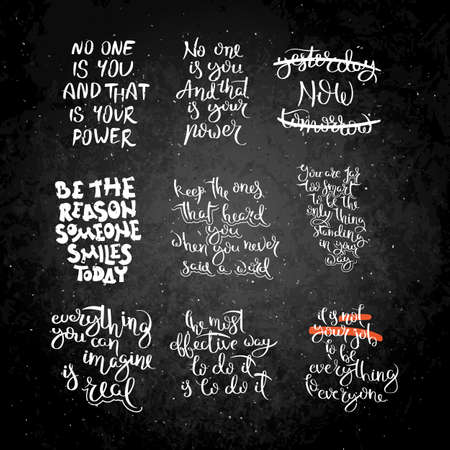 NO ONE
IS YOU
AND THAT
IS YOUR
POWER
No one
is you
And that
is your
power
yesterday
NOW
tomorrow
BE THE
REASON
SOMEONE
SMILES
TODAY
keep the ones
that heard
you
when you never
said a word
you are far
too smart
to be the
only thing
standing
in your
way
everything
you can
imagine
is real
the most
effective way
to do it
is to do it
it is not
your job
to be
everything
to everyone